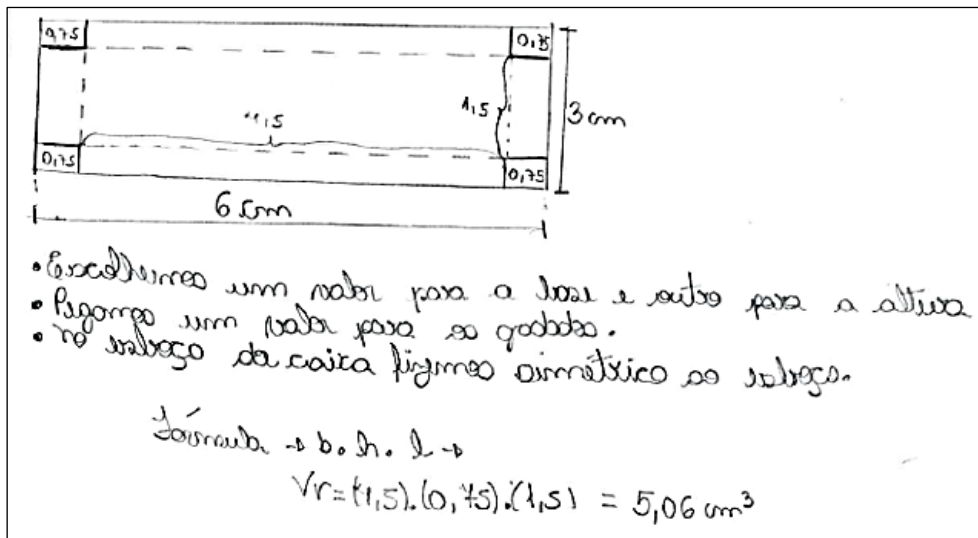 0,75 0,75
1,5 3 cm
4,5
0,75 0,75
6 cm
• Escolhemos um valor para a base e outro para a altura
• Pegamos um valor para os
• No esboço da caixa fizemos simétrico ao esboço.
Fórmula → b. h. l →
Vr = (4,5).(0,75).(1,5) = 5,06 cm³